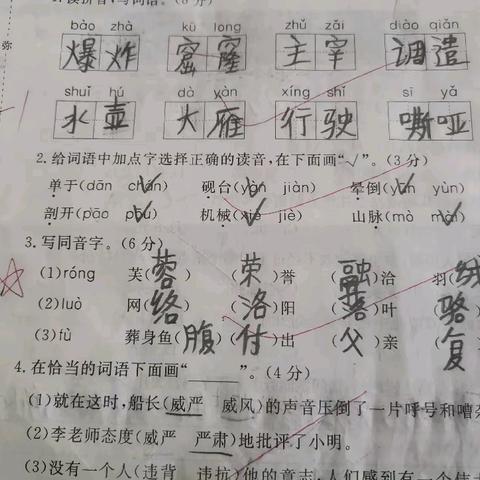 bào zhà kū long zhǔ zǎi diào qiǎn
爆炸 窟窿 主宰 调遣
shuǐ hú dà yàn xíng shǐ sī yǎ
水壶 大雁 行驶 嘶哑
2.给词语中加点字选择正确的读音,在下面画“√”。(3分)
单于(dān chán) 砚台(yàn jiàn) 晕倒(yūn yùn)
剖开(pāo pōu) 机械(xiè jiè) 山脉(mò mài)
3.写同音字。(6分)
(1)róng 芙(蓉) (荣)誉 (融)洽 羽(绒
(2)luò 网(络) (洛)阳 (落)叶 (骆
(3)fù 葬身鱼(腹) (付)出 (父)亲 (复
4.在恰当的词语下面画“____”。(4分)
(1)就在这时,船长(威严 威风)的声音压倒了一片呼号和嘈
(2)李老师态度(威严 严肃)地批评了小明。
(3)没有一个人(违背 违抗)他的意志,人们感到有一个伟